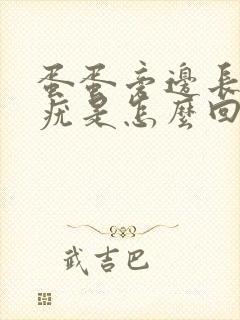 蛋蛋旁邊長
疣是怎麼回
武吉巴